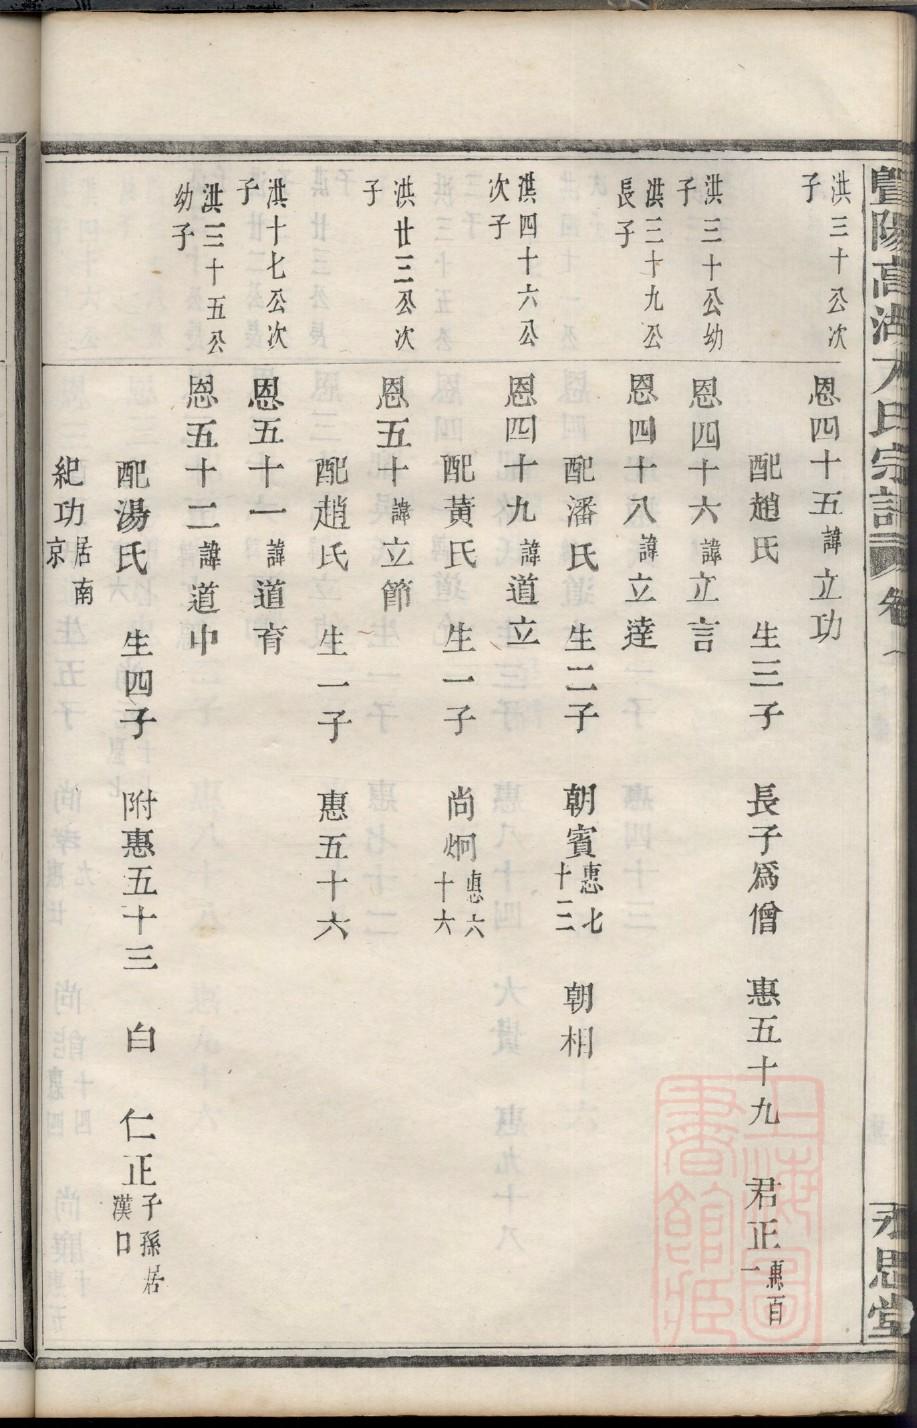 暨陽高湖方氏宗譜 卷
永思堂
洪三十公次子
恩四十五諱立功
配趙氏 生三子 長子爲僧 惠五十九 君正惠百一
洪三十公幼子
恩四十六諱立言
洪三十九公長子
恩四十八諱立達
配潘氏 生二子 朝賓惠七十二 朝相
洪四十六公次子
恩四十九諱道立
配黃氏 生一子 尚炯惠六十六
洪廿三公次子
恩五十諱立節
配趙氏 生一子 惠五十六
洪十七公次子
恩五十一諱道育
洪三十五公幼子
恩五十二諱道中
配湯氏 生四子 附惠五十三 白 仁正子孫居漢口
紀功居南京
上海圖書館藏